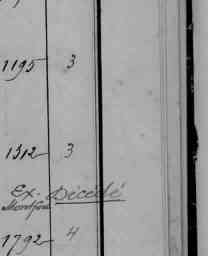 1195 3
1312 3
Ex. Décédé
1792 4